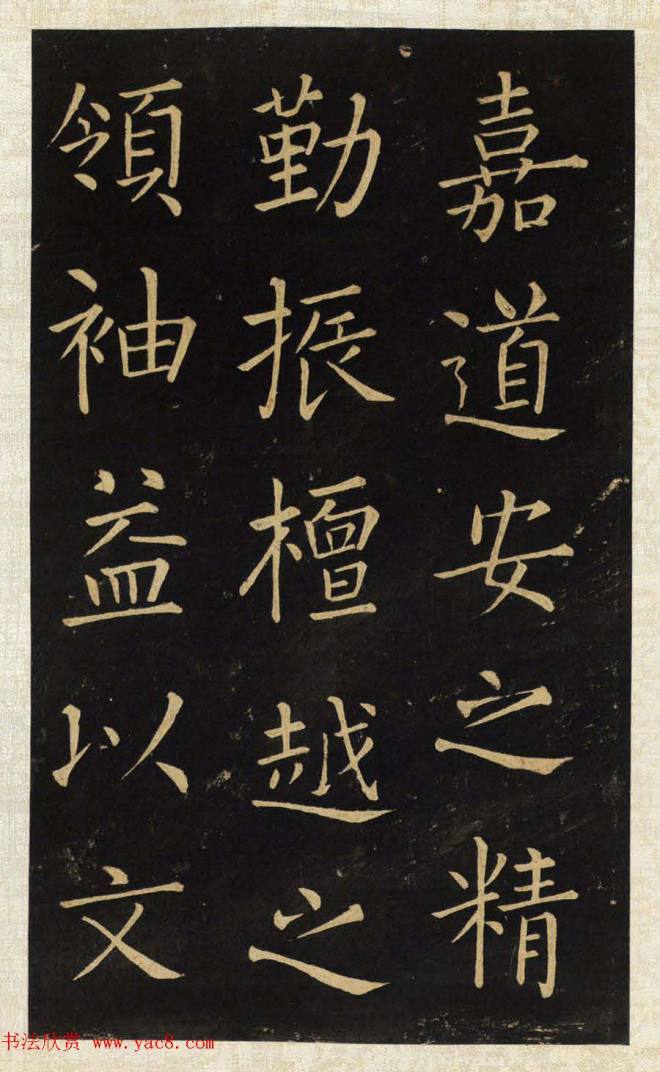 嘉道安之精
勤振檀越之
領袖益以文
书法欣赏 www.yac8.com